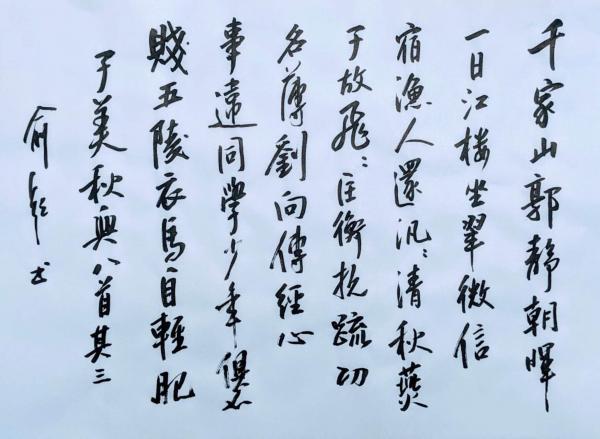 千家山郭静朝暉
一日江楼坐翠微信
宿漁人還汎〻清秋燕
子故飛〻匡衡抗疏功
名薄劉向傳經心
事違同學少年俱不
賤五陵衣馬自輕肥
子美秋興八首其三
俞 书